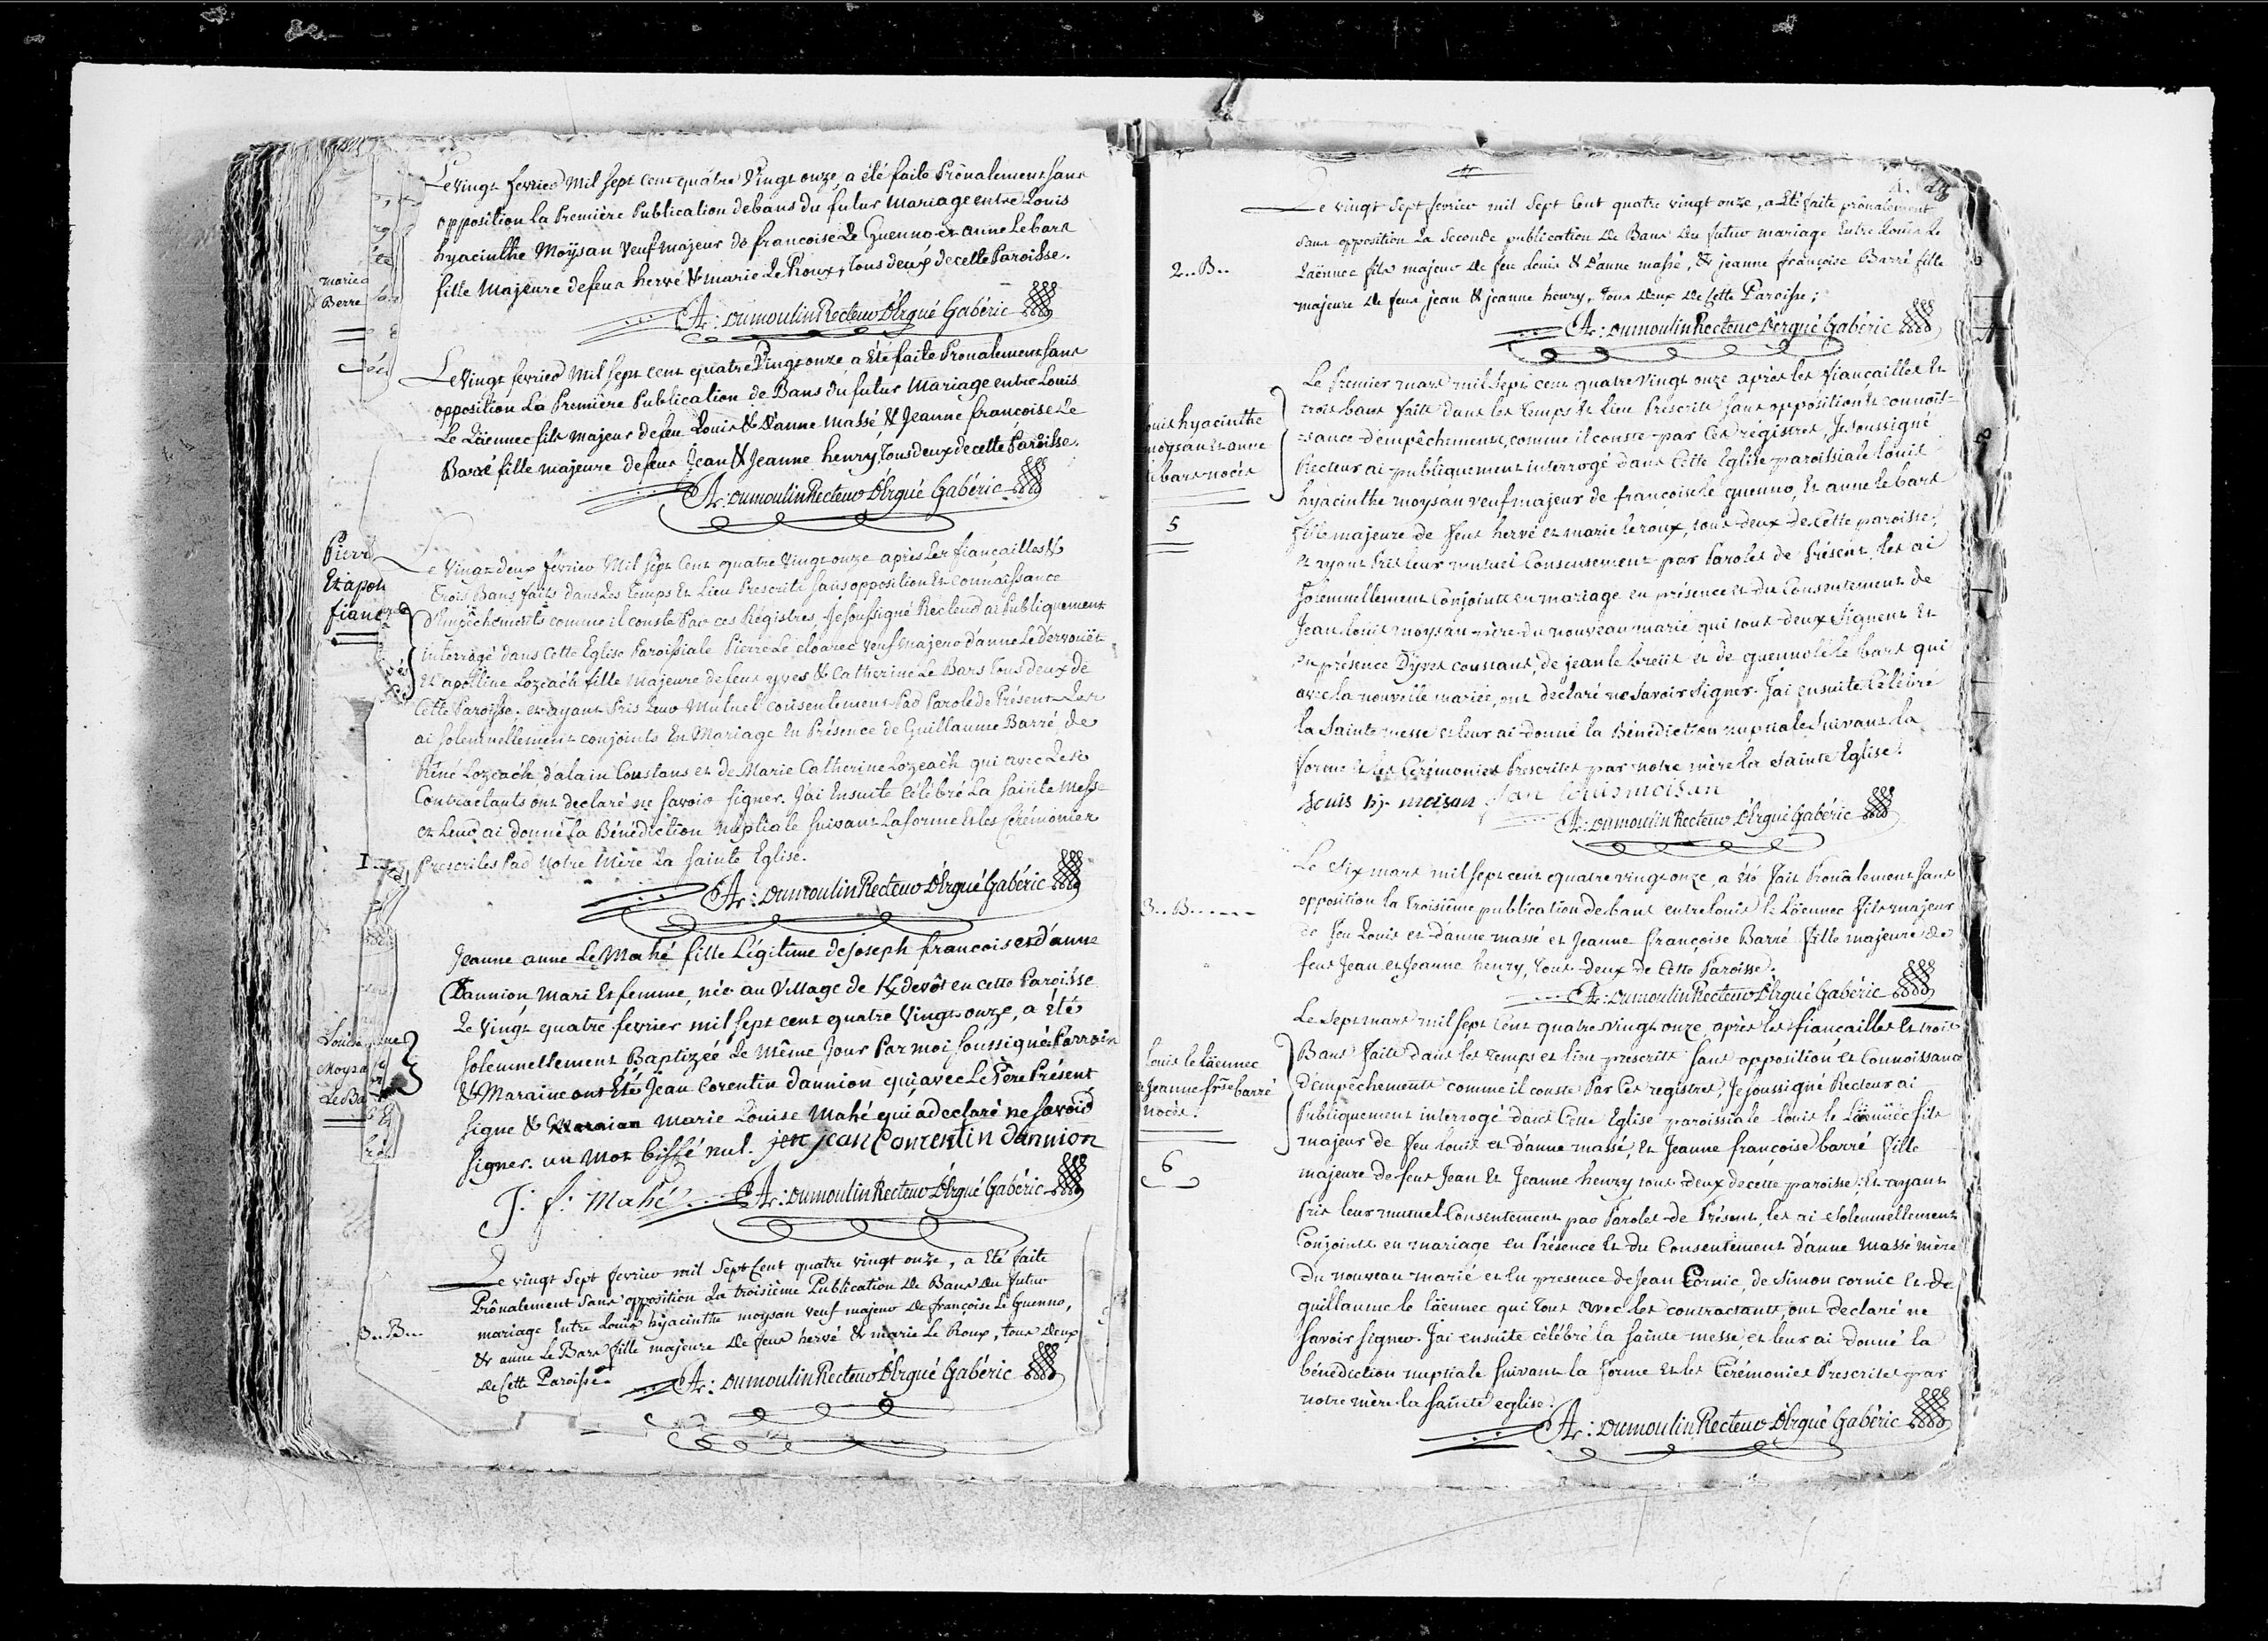 Le vingt fevrier Mil sept cent quatre Vingt onze, a été faite Prônalement sans
opposition La Première Publication de bans du futur Mariage entre Louis
hyacinthe Moÿsan Veuf Majeur de francoise Le Guenno et anne Le bars
fille Majeure de feus hervé & marie Le Roux, tous deux de cette Paroisse.
A: Dumoulin Recteur D'Ergué Gabéric
Le vingt fevrier Mil sept cent quatre Vingt onze, a été faite Pronalement sans
opposition La Première Publication de Bans du futur Mariage entre Louis
Le Läennec fils majeur de feu Louis & d'anne Massé & Jeanne françoise Le
Barré fille majeure de feus Jean & Jeanne henry, Tous deux de cette Paroisse.
A: Dumoulin Recteur D'Ergué Gabéric
Le Vingt deux fevrier Mil sept Cent quatre Vingt onze après Les fiançailles &
Trois Bans faits dans Les Temps Et Lieu Prescrits sans opposition Et Connaissance
D'Empêchements comme il conste Par ces Régistres, Je soussigné Recteur ai Publiquement
interrogé dans Cette Eglise Paroissiale Pierre Le cloarec Veuf Majeur d'anne Le dervouët
Et apolline Lozeach fille Majeure de feus yves & Catherine Le Bars Tous deux de
Cette Paroisse. et ayant Pris Leur Mutuel consentement Par Parole de Présent Les
ai solemnellement conjoints En Mariage En Présence de Guillaume Barré, de
Réné Lozeach d'alain Coustans et de Marie Catherine Lozeach qui avec Les
Contractants ont declaré ne savoir signer. J'ai Ensuite Célébré La sainte Messe
et Leur ai donné La Bénédiction Nuptiale suivant La forme Et les Cérémonies
Prescrites Par Notre Mère La sainte Eglise.
A: Dumoulin Recteur D'Ergué Gabéric
Jeanne anne Le Mahé fille Légitime de joseph francois et d'anne
Dannion Mari Et femme, née au Village de Kdevôt en cette Paroisse
Le Vingt quatre fevrier mil sept cent quatre Vingt onze, a été
solemnellement Baptizée Le Même Jour Par moi soussigné. Parrain
& Maraine ont Eté Jean Corentin dannion qui avec Le Père Présent
signe & Marie Louise Mahé qui a declaré ne savoir
signer. un Mot biffé nul. jean Corentin dannion
J: f: Mahé A: Dumoulin Recteur D'Ergué Gabéric
3..B...
Le vingt Sept fevrier mil Sept Cent quatre vingt onze, a Eté faite
Prônalement sans opposition La troisième Publication De Bans Du futur
mariage Entre Louis hyacinthe moysan veuf majeur De françoise Le Guenno,
& anne Le Bars fille majeure De feus hervé & marie Le Roux, tous Deux
De Cette Paroisse.
A: Dumoulin Recteur D'Ergué Gabéric
2..B..
Le vingt Sept fevrier mil Sept Cent quatre vingt onze, a Eté faite prônalement
sans opposition La Seconde publication De Bans Du futur mariage Entre Louis Le
Laënnec fils majeur De feu Louis & D'anne massé, & jeanne françoise Barré fille
majeure De feus jean & jeanne henry, Tous Deux De Cette Paroisse;
A: Dumoulin Recteur D'Ergué Gabéric
Louis hyacinthe
moysan et anne
le bars nocés
5
Le Premier mars mil sept cent quatre vingt onze après les fiançailles Et
trois bans faits dans les Temps Et Lieu Prescrits sans opposition Et connois-
sance d'empêchements, comme il conste par ces régistres, Je soussigné
Recteur ai publiquement interrogé dans Cette Eglise paroissiale Louis
hyacinthe moysan veuf majeur de françoise le guenno, Et anne le bars
fille majeure de feus hervé et marie le roux, tous deux de Cette paroisse,
et ayant Pris leur mutuel Consentement par Paroles de Présent, les ai
solemnellement Conjoints en mariage en présence et du Consentement de
Jean Louis moysan père du nouveau marié qui tous deux signent Et
en présence D'yves coustans, de jean le breüs et de guennolé le bars qui
avec la nouvelle mariée, ont declaré ne savoir signer. J'ai ensuite Célébré
la Sainte messe et leur ai donné la Bénédiction nuptiale suivant la
forme Et les Cérémonies Prescrites par notre mère la Sainte Eglise.
Louis hy. moisan Jan Louis moisan
A: Dumoulin Recteur D'Ergué Gabéric
3..B......
Le Six mars mil sept cent quatre vingt onze, a été fait Pronâlement sans
opposition la Troisième publication de bans entre Louis le Läennec fils majeur
de feu Louis et d'anne massé et Jeanne françoise Barré fille majeure de
feus Jean et Jeanne henry, tous deux de Cette Paroisse.
A: Dumoulin Recteur D'Ergué Gabéric
Louis le läennec
& Jeanne frse barré
nocés.
6
Le Sept mars mil sept Cent quatre vingt onze, après les fiançailles Et trois
Bans faits dans les temps et lieu prescrits sans opposition et Connoissance
d'empêchements comme il conste Par Ces registres, Je soussigné Recteur ai
Publiquement interrogé dans Cette Eglise paroissiale Louis le Läennec fils
majeur de feu Louis et d'anne massé, Et Jeanne françoise barré fille
majeure de feus Jean Et Jeanne henry tous deux de cette paroisse: Et ayant
Pris leur mutuel Consentement par Paroles de Présent, les ai Solemnellement
Conjoints en mariage en Présence Et du Consentement d'anne Massé mère
Du nouveau marié et En presence de Jean Cornic, de Simon cornic Et de
guillaume le läennec qui Tous avec les contractants, ont declaré ne
savoir signer. J'ai ensuite célébré la sainte messe et leur ai donné la
bénediction nuptiale suivant la forme Et les Cérémonies Prescrites par
notre mère la sainte eglise.
A: Dumoulin Recteur D'Ergué Gabéric